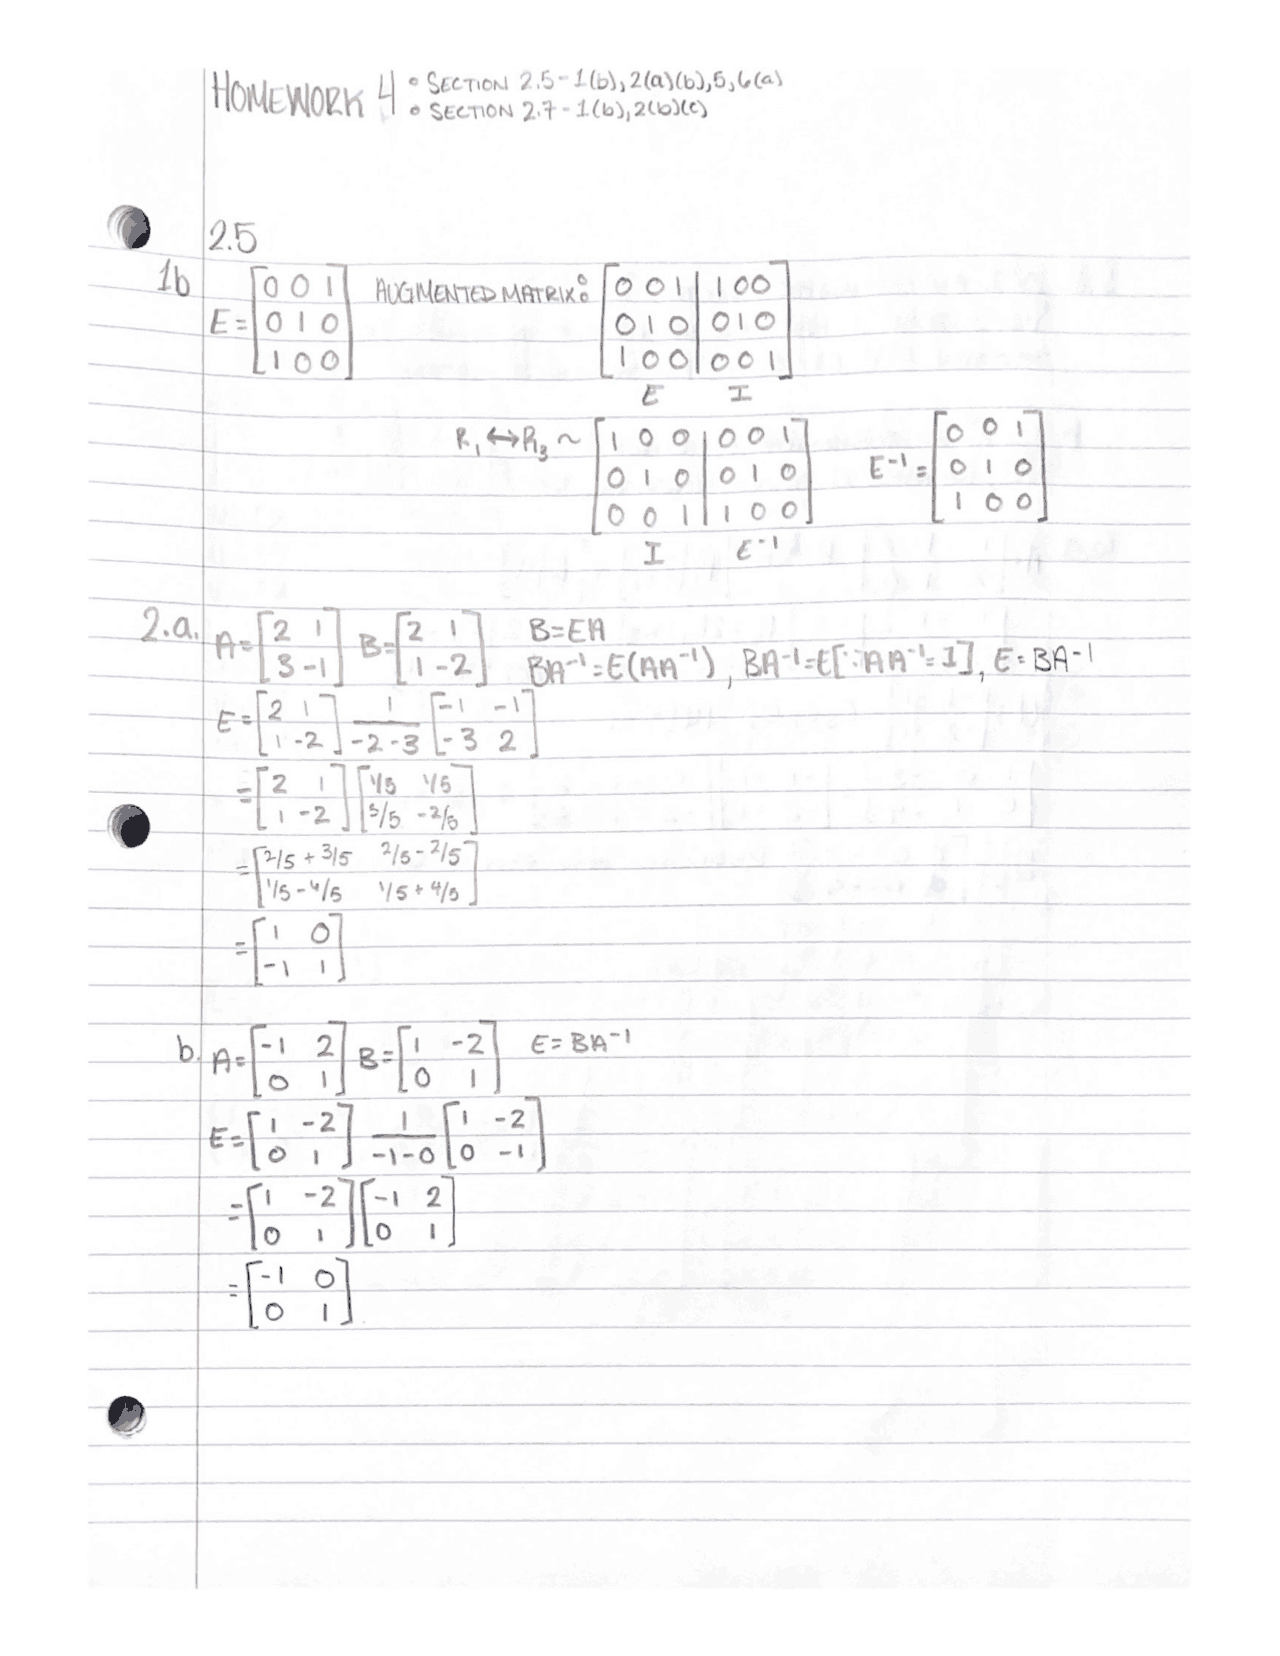 HOMEWORK 4 • SECTION 2.5 - 1(b), 2(a)(b), 5, 6(a)
• SECTION 2.7 - 1(b), 2(b)(c)
2.5
1b E = [0 0 1; 0 1 0; 1 0 0] AUGMENTED MATRIX: [0 0 1 | 1 0 0; 0 1 0 | 0 1 0; 1 0 0 | 0 0 1]
E I
R₁ ↔ R₃ ~ [1 0 0 | 0 0 1; 0 1 0 | 0 1 0; 0 0 1 | 1 0 0] E⁻¹ = [0 0 1; 0 1 0; 1 0 0]
I E⁻¹
2.a. A = [2 1; 3 -1] B = [2 1; 1 -2] B = EA
BA⁻¹ = E(AA⁻¹), BA⁻¹ = E[∵ AA⁻¹ = I], E = BA⁻¹
E = [2 1; 1 -2] 1/(-2-3) [-1 -1; -3 2]
= [2 1; 1 -2] [1/5 1/5; 3/5 -2/5]
= [2/5 + 3/5 2/5 - 2/5; 1/5 - 6/5 1/5 + 4/5]
= [1 0; -1 1]
b. A = [-1 2; 0 1] B = [1 -2; 0 1] E = BA⁻¹
E = [1 -2; 0 1] 1/(-1-0) [1 -2; 0 -1]
= [1 -2; 0 1] [-1 2; 0 1]
= [-1 0; 0 1]